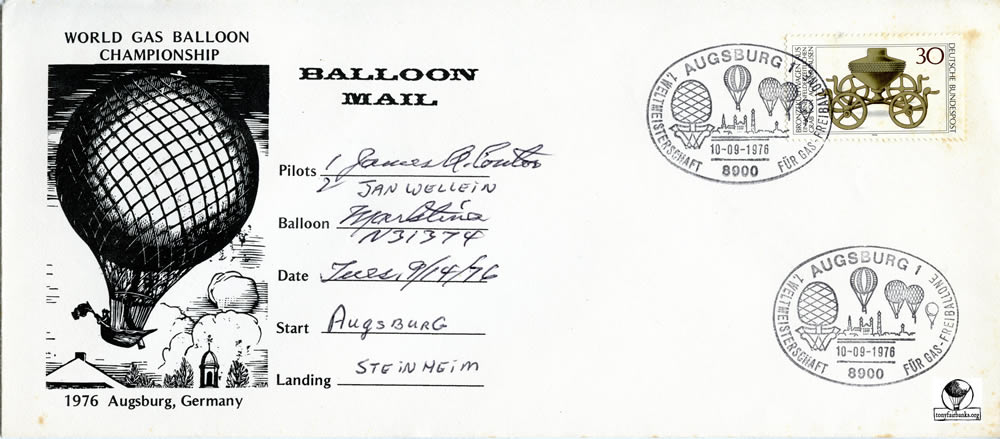 WORLD GAS BALLOON
CHAMPIONSHIP
BALLOON
MAIL
Pilots 1 James A. Contos
2 JAN WELLEIN
Balloon
N31374
Date Tues, 9/14/76
Start AUGSBURG
Landing STEINHEIM
1976 Augsburg, Germany
AUGSBURG 1
1. WELTMEISTERSCHAFT FÜR GAS-FREIBALLONE
10-09-1976
8900
30
DEUTSCHE BUNDESPOST
AUGSBURG 1
1. WELTMEISTERSCHAFT FÜR GAS-FREIBALLONE
10-09-1976
8900
tonyfairbanks.org